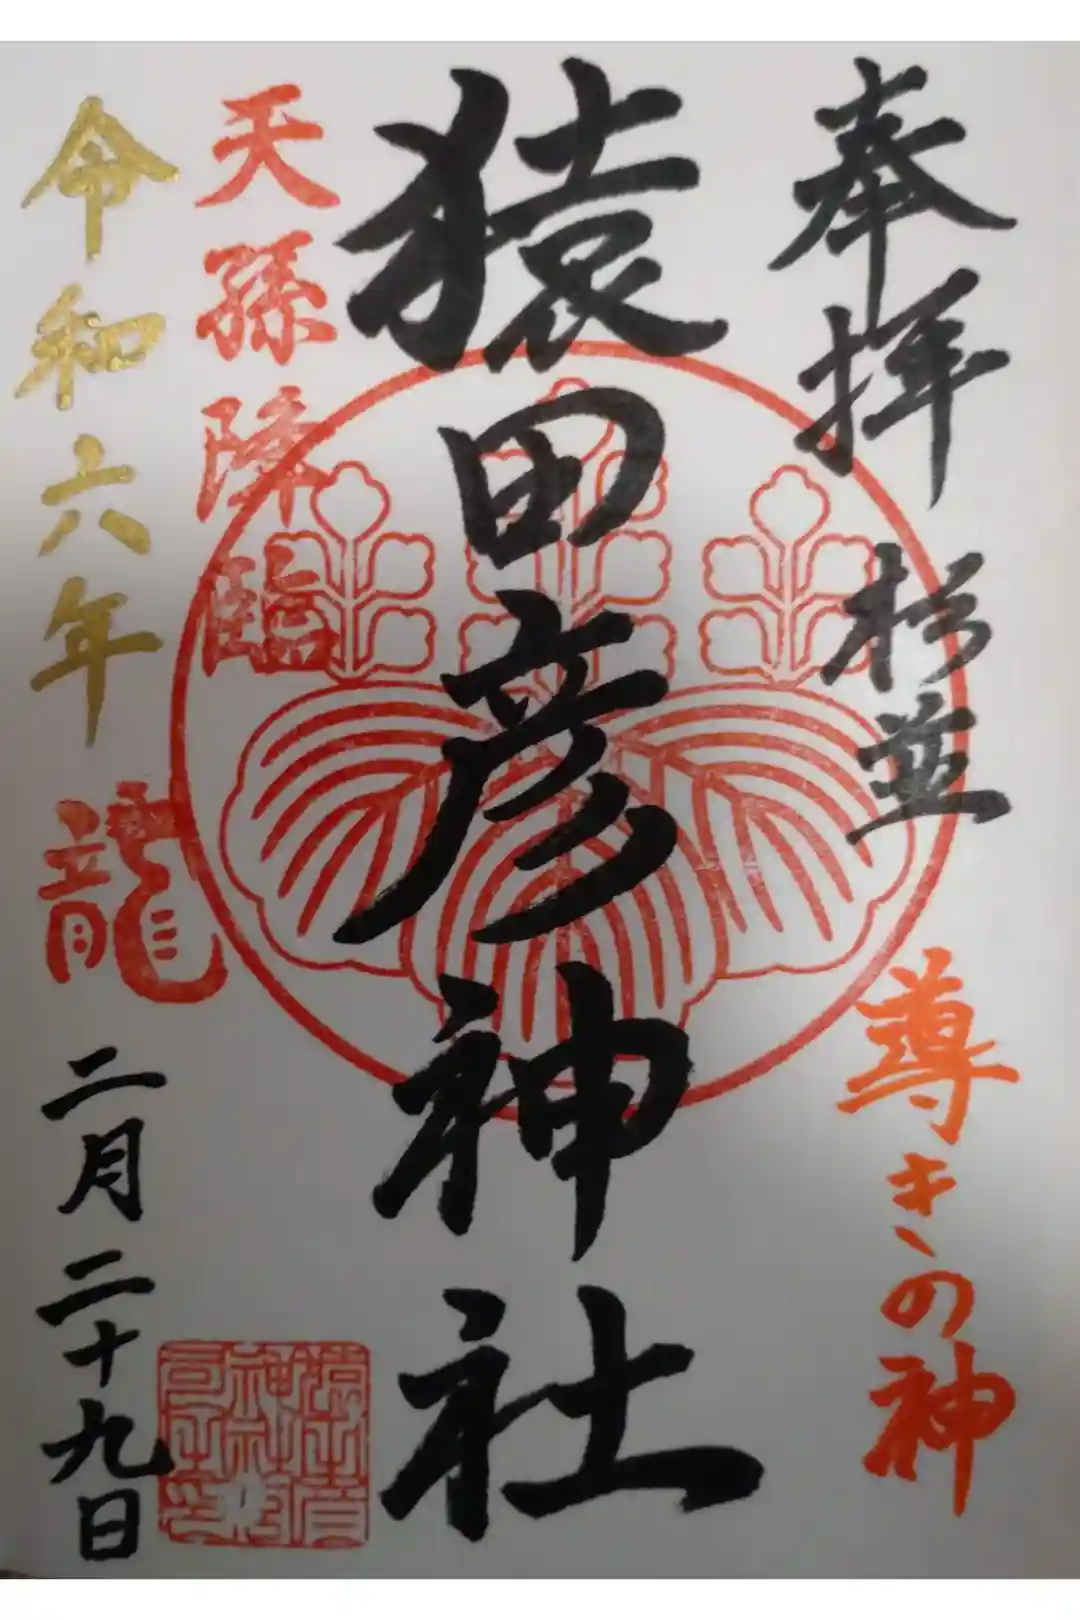 奉拝 杉並 導きの神
猿田彦神社
天孫降臨
令和六年 龍 二月二十九日